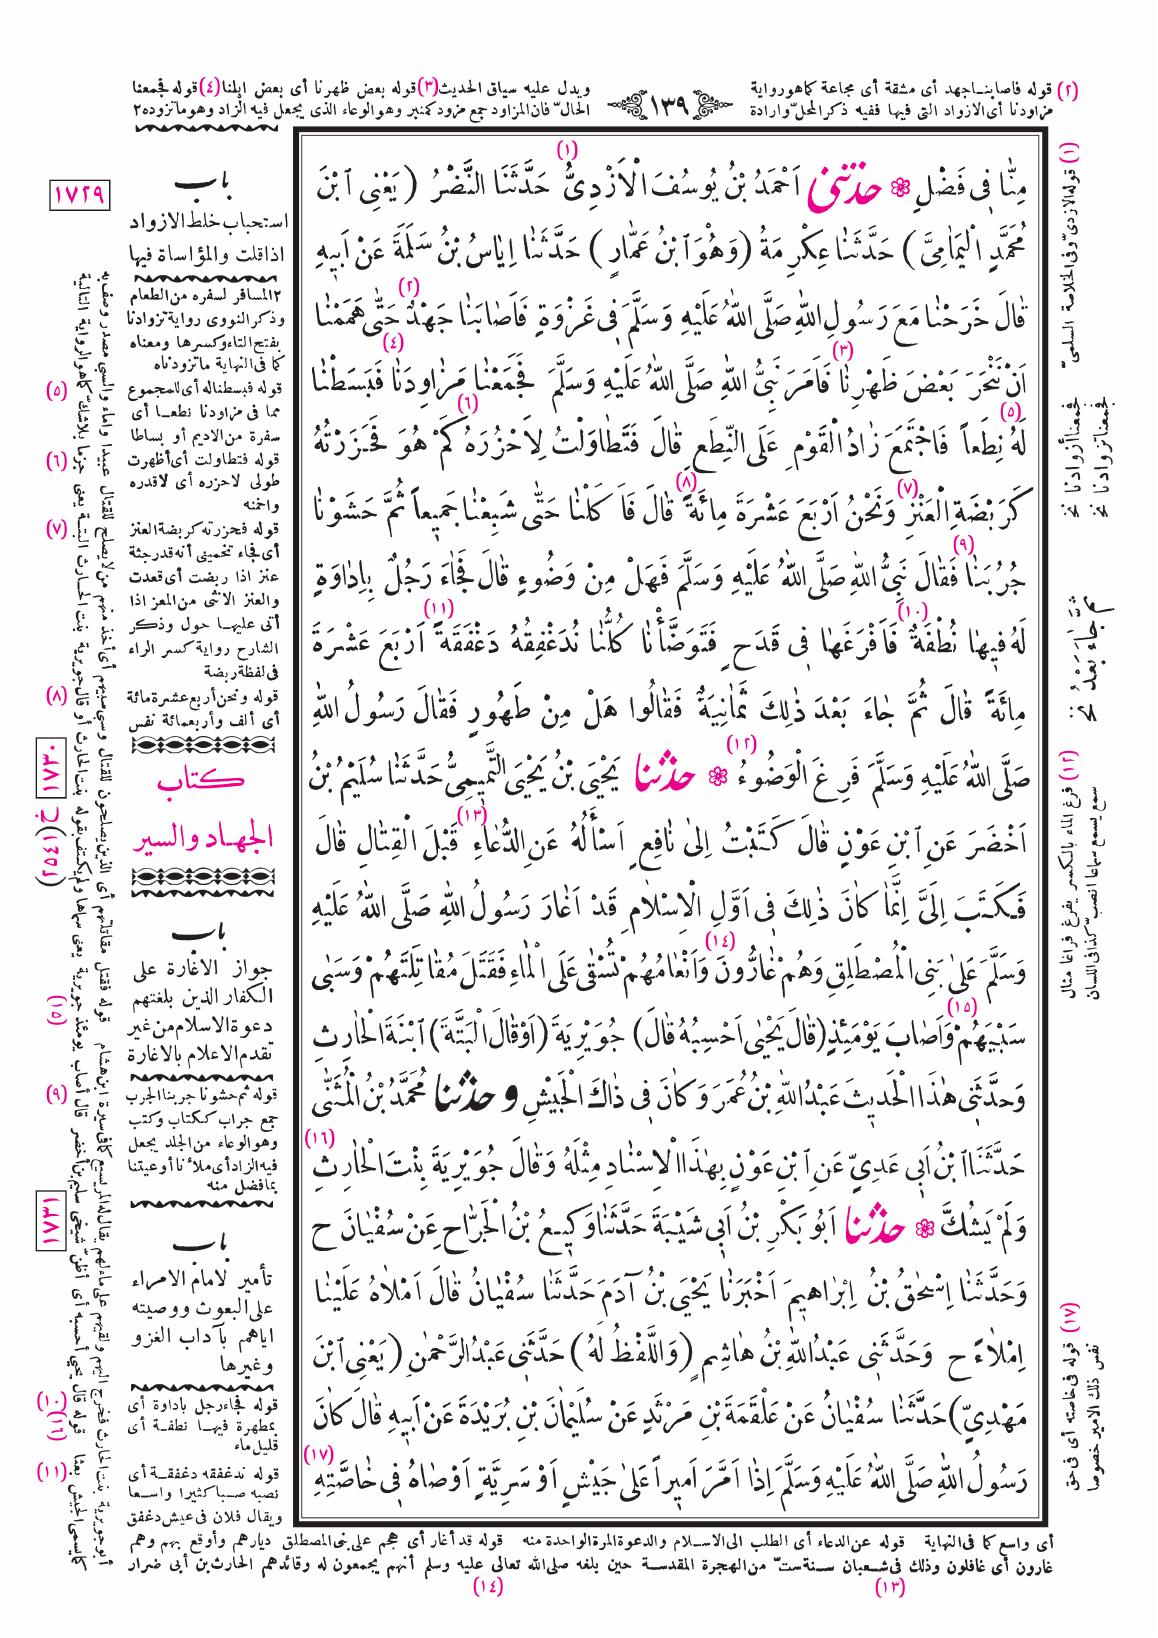 (٢) قوله فاصابنا جهد أى مشقة أى مجاعة كماهورواية
مزاودنا أى الازواد التى فيها ففيه ذكر المحلّ وارادة
١٣٩
ويدل عليه سياق الحديث (٣) قوله بعض ظهرنا أى بعض ابلنا (٤) قوله فجمعنا
الحالّ فان المزاود جمع مزود كمنبر وهو الوعاء الذى يجعل فيه الزاد وهو ما تزوده ٢
(١)
مِنَّا فِى فَضْلٍ ❁ حَدَّثَنِى اَحْمَدُ بْنُ يُوسُفَ الْاَزْدِىُّ حَدَّثَنَا النَّضْرُ ( يَعْنِى ابْنَ
مُحَمَّدٍ الْيَمَامِىَّ ) حَدَّثَنَا عِكْرِمَةُ ( وَهُوَ ابْنُ عَمَّارٍ ) حَدَّثَنَا اِيَاسُ بْنُ سَلَمَةَ عَنْ اَبِيهِ
(٢)
قَالَ خَرَجْنَا مَعَ رَسُولِ اللهِ صَلَّى اللهُ عَلَيْهِ وَسَلَّمَ فِى غَزْوَةٍ فَاَصَابَنَا جَهْدٌ حَتّٰى هَمَمْنَا
(٣) (٤)
اَنْ نَنْحَرَ بَعْضَ ظَهْرِنَا فَاَمَرَ نَبِىُّ اللهِ صَلَّى اللهُ عَلَيْهِ وَسَلَّمَ فَجَمَعْنَا مَزَاوِدَنَا فَبَسَطْنَا
(٥) (٦)
لَهُ نِطَعاً فَاجْتَمَعَ زَادُ الْقَوْمِ عَلَى النِّطَعِ قَالَ فَتَطَاوَلْتُ لِاَحْزُرَهُ كَمْ هُوَ فَحَزَرْتُهُ
(٧) (٨)
كَرَبْضَةِ الْعَنْزِ وَنَحْنُ اَرْبَعَ عَشْرَةَ مِائَةً قَالَ فَاَكَلْنَا حَتّٰى شَبِعْنَا جَمِيعاً ثُمَّ حَشَوْنَا
(٩)
جُرُبَنَا فَقَالَ نَبِىُّ اللهِ صَلَّى اللهُ عَلَيْهِ وَسَلَّمَ فَهَلْ مِنْ وَضُوءٍ قَالَ فَجَاءَ رَجُلٌ بِاِدَاوَةٍ
(١٠) (١١)
لَهُ فِيهَا نُطْفَةٌ فَاَفْرَغَهَا فِى قَدَحٍ فَتَوَضَّأْنَا كُلُّنَا نُدَغْفِقُهُ دَغْفَقَةً اَرْبَعَ عَشْرَةَ
مِائَةً قَالَ ثُمَّ جَاءَ بَعْدَ ذٰلِكَ ثَمَانِيَةٌ فَقَالُوا هَلْ مِنْ طَهُورٍ فَقَالَ رَسُولُ اللهِ
(١٢)
صَلَّى اللهُ عَلَيْهِ وَسَلَّمَ فَرِغَ الْوَضُوءُ ❁ حَدَّثَنَا يَحْيَى بْنُ يَحْيَى التَّمِيمِىُّ حَدَّثَنَا سُلَيْمُ بْنُ
(١٣)
اَخْضَرَ عَنِ ابْنِ عَوْنٍ قَالَ كَتَبْتُ اِلىٰ نَافِعٍ اَسْأَلُهُ عَنِ الدُّعَاءِ قَبْلَ الْقِتَالِ قَالَ
فَكَتَبَ اِلَىَّ اِنَّمَا كَانَ ذٰلِكَ فِى اَوَّلِ الْاِسْلَامِ قَدْ اَغَارَ رَسُولُ اللهِ صَلَّى اللهُ عَلَيْهِ
(١٤)
وَسَلَّمَ عَلىٰ بَنِى الْمُصْطَلِقِ وَهُمْ غَارُّونَ وَاَنْعَامُهُمْ تُسْقىٰ عَلَى الْمَاءِ فَقَتَلَ مُقَاتِلَتَهُمْ وَسَبىٰ
(١٥)
سَبْيَهُمْ وَاَصَابَ يَوْمَئِذٍ ( قَالَ يَحْيىٰ اَحْسِبُهُ قَالَ ) جُوَيْرِيَةَ ( اَوْ قَالَ الْبَتَّةَ ) ابْنَةَ الْحَارِثِ
وَحَدَّثَنِى هٰذَا الْحَدِيثَ عَبْدُ اللهِ بْنُ عُمَرَ وَكَانَ فِى ذَاكَ الْجَيْشِ وحَدَّثَنَا مُحَمَّدُ بْنُ الْمُثَنّٰى
(١٦)
حَدَّثَنَا ابْنُ اَبِى عَدِىٍّ عَنِ ابْنِ عَوْنٍ بِهٰذَا الْاِسْنَادِ مِثْلَهُ وَقَالَ جُوَيْرِيَةَ بِنْتَ الْحَارِثِ
وَلَمْ يَشُكَّ ❁ حَدَّثَنَا اَبُو بَكْرِ بْنُ اَبِى شَيْبَةَ حَدَّثَنَا وَكِيعُ بْنُ الْجَرَّاحِ عَنْ سُفْيَانَ ح
وَحَدَّثَنَا اِسْحٰقُ بْنُ اِبْرَاهِيمَ اَخْبَرَنَا يَحْيَى بْنُ آدَمَ حَدَّثَنَا سُفْيَانُ قَالَ اَمْلَاهُ عَلَيْنَا
اِمْلَاءً ح وَحَدَّثَنِى عَبْدُ اللهِ بْنُ هَاشِمٍ ( وَاللَّفْظُ لَهُ ) حَدَّثَنِى عَبْدُ الرَّحْمٰنِ ( يَعْنِى ابْنَ
مَهْدِىٍّ ) حَدَّثَنَا سُفْيَانُ عَنْ عَلْقَمَةَ بْنِ مَرْثَدٍ عَنْ سُلَيْمَانَ بْنِ بُرَيْدَةَ عَنْ اَبِيهِ قَالَ كَانَ
(١٧)
رَسُولُ اللهِ صَلَّى اللهُ عَلَيْهِ وَسَلَّمَ اِذَا اَمَّرَ اَمِيراً عَلىٰ جَيْشٍ اَوْ سَرِيَّةٍ اَوْصَاهُ فِى خَاصَّتِهِ
(١) قوله الازدىّ وفى الخلاصة السلمىّ
فجمعنا أزوادنا نخ
فجمعنا تزوادنا نخ
ثم جاء بعد نخ
(١٢) فرغ الماء بالكسر يفرغ فراغا مثال
سمع يسمع سماعا انصبّ كذا فى اللسان
(١٧) قوله فى خاصته أى فى حق
نفس ذلك الامير خصوصا
١٧٢٩
باب
استحباب خلط الازواد
اذا قلت والمؤاساة فيها
٢ المسافر لسفره من الطعام
وذكر النووى رواية تزوادنا
بفتح التاء وكسرها ومعناه
كما فى النهاية ما تزودناه
(٥) قوله فبسطناله أى للمجموع
مما فى مزاودنا نطعا أى
سفرة من الاديم أو بساطا
(٦) قوله فتطاولت أى أظهرت
طولى لاحزره أى لاقدره
واخمنه
(٧) قوله فحزرته كربضة العنز
أى فجاء تخمينى أنه قدر جثة
عنز اذا ربضت أى قعدت
والعنز الانثى من المعز اذا
أتى عليها حول وذكر
الشارح رواية كسر الراء
فى لفظة ربضة
(٨) قوله ونحن أربع عشرة مائة
أى ألف وأربعمائة نفس
كتاب
الجهاد والسير
١٧٣٠
باب
جواز الاغارة على
الكفار الذين بلغتهم
دعوة الاسلام من غير
تقدم الاعلام بالاغارة
(٩) قوله ثم حشونا جربنا الجرب
جمع جراب ككتاب وكتب
وهو الوعاء من الجلد يجعل
فيه الزاد أى ملأنا أوعيتنا
بما فضل منه
١٧٣١
باب
تأمير الامام الامراء
على البعوث ووصيته
اياهم بآداب الغزو
وغيرها
(١٠) قوله فجاء رجل باداوة أى
بمطهرة فيها نطفة أى
قليل ماء
(١١) قوله ندغفقه دغفقة أى
نصبه صبا كثيرا واسعا
ويقال فلان فى عيش دغفق
أى واسع كما فى النهاية قوله عن الدعاء أى الطلب الى الاسلام والدعوة المرة الواحدة منه قوله قد أغار أى هجم على بنى المصطلق ديارهم وأوقع بهم وهم
غارون أى غافلون وذلك فى شعبان سنة ستّ من الهجرة المقدسة حين بلغه صلى الله تعالى عليه وسلم أنهم يجمعون له وقائدهم الحارث بن أبى ضرار
(١٣) (١٤)